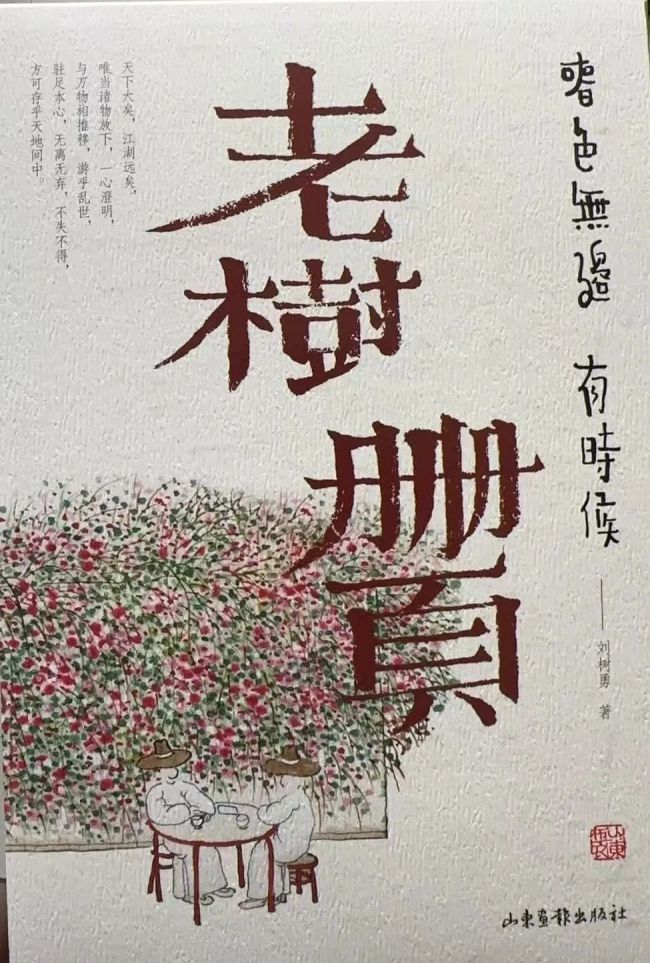 春色無邊 有時候
——刘树勇 著
老樹
册頁
天下大矣，江湖远矣，
唯当诸物放下，一心澄明，
与万物相推移，游乎乱世，
驻足本心，无离无弃，不失不得，
方可存乎天地间中。
山东画报出版社